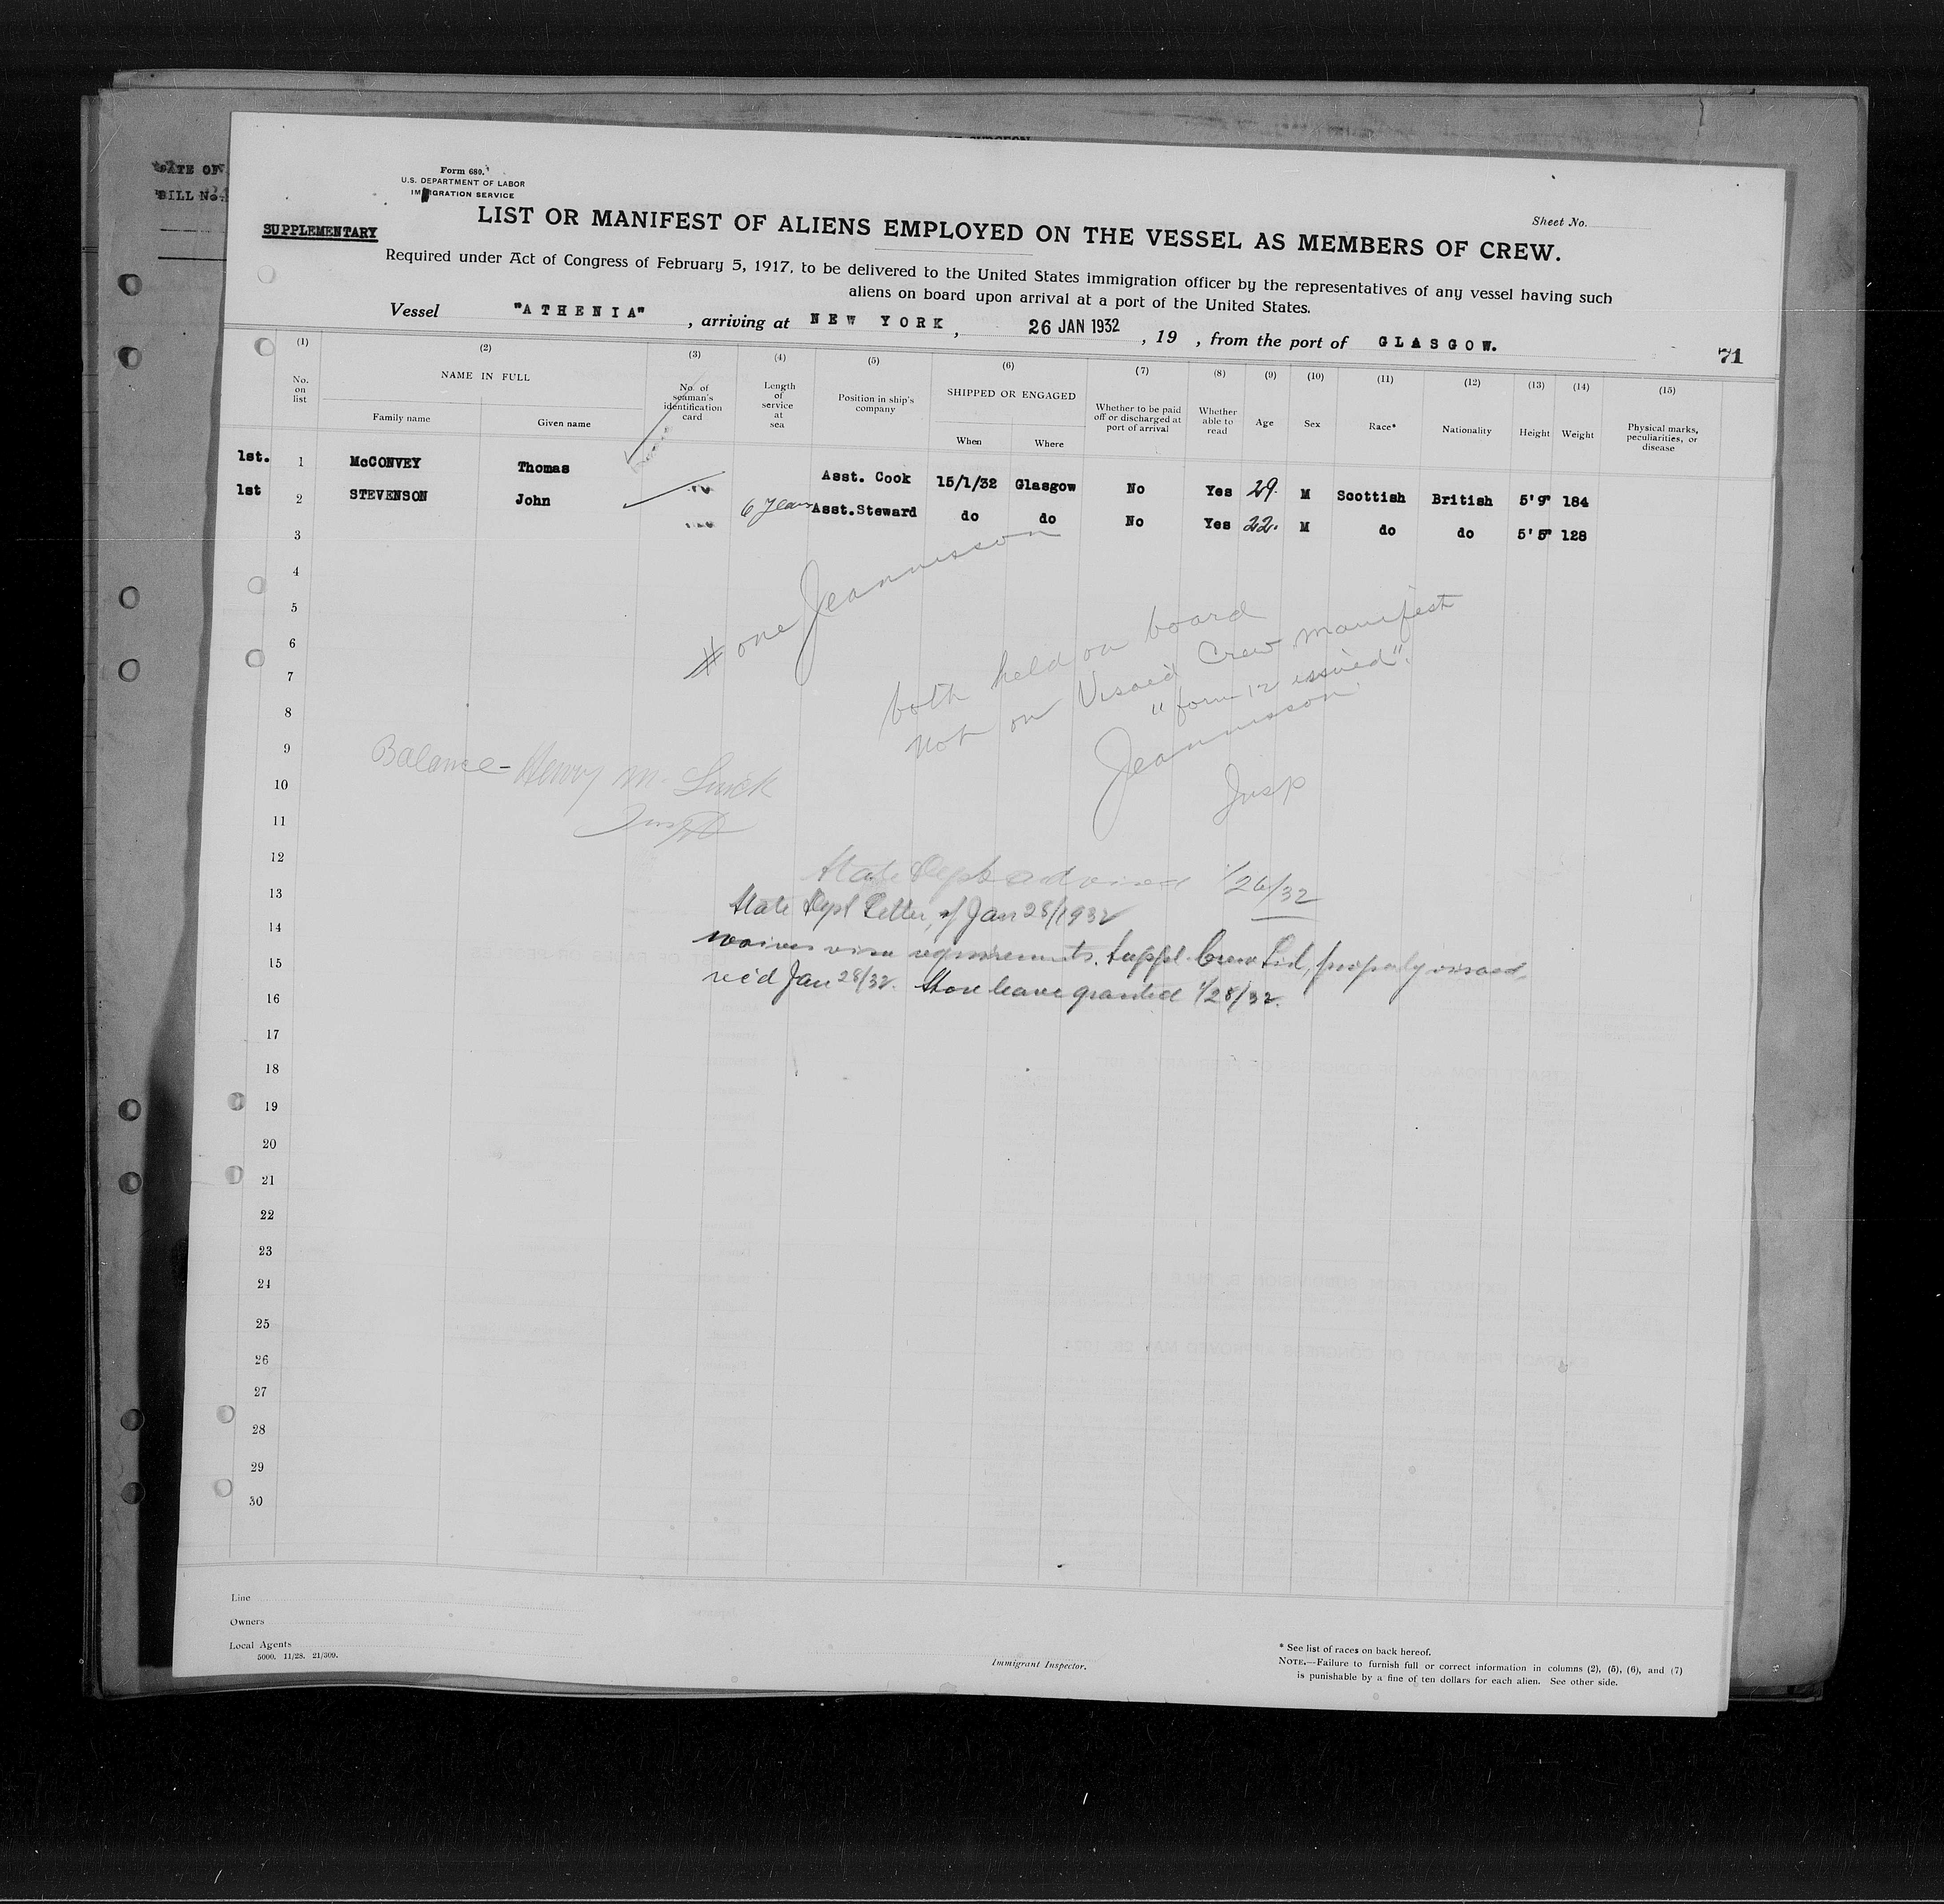 DATE OF
BILL No.
Form 680.
U.S. DEPARTMENT OF LABOR
IMMIGRATION SERVICE
Sheet No.
SUPPLEMENTARY
LIST OR MANIFEST OF ALIENS EMPLOYED ON THE VESSEL AS MEMBERS OF CREW.
Required under Act of Congress of February 5, 1917, to be delivered to the United States immigration officer by the representatives of any vessel having such
aliens on board upon arrival at a port of the United States.
Vessel "ATHENIA", arriving at NEW YORK, 26 JAN 1932, 19 , from the port of GLASGOW.
71
(1) (2) (3) (4) (5) (6) (7) (8) (9) (10) (11) (12) (13) (14) (15)
No. on list NAME IN FULL Family name Given name No. of seaman's identification card Length of service at sea Position in ship's company SHIPPED OR ENGAGED When Where Whether to be paid off or discharged at port of arrival Whether able to read Age Sex Race* Nationality Height Weight Physical marks, peculiarities, or disease
1st. 1 McCONVEY Thomas Asst. Cook 15/1/32 Glasgow No Yes 29. M Scottish British 5'9" 184
1st 2 STEVENSON John 6 years Asst.Steward do do No Yes 22. M do do 5'5" 128
3
4
5
6
7
8
9
10
11
12
13
14
15
16
17
18
19
20
21
22
23
24
25
26
27
28
29
30
# one Jeannisson
both held on board
not on Visaed Crew manifest
"form 12 issued".
Jeannisson
Insp
Balance - Henry M.
Insp
State Dept advised 1/26/32
State Dept Letter, of Jan 28/1932
waives visa requirements. Suppl. Crew List, properly visaed,
rec'd Jan 28/32. Shore leave granted 1/28/32.
Line
Owners
Local Agents
5000. 11/28. 21/309.
Immigrant Inspector.
* See list of races on back hereof.
NOTE.—Failure to furnish full or correct information in columns (2), (5), (6), and (7)
is punishable by a fine of ten dollars for each alien. See other side.